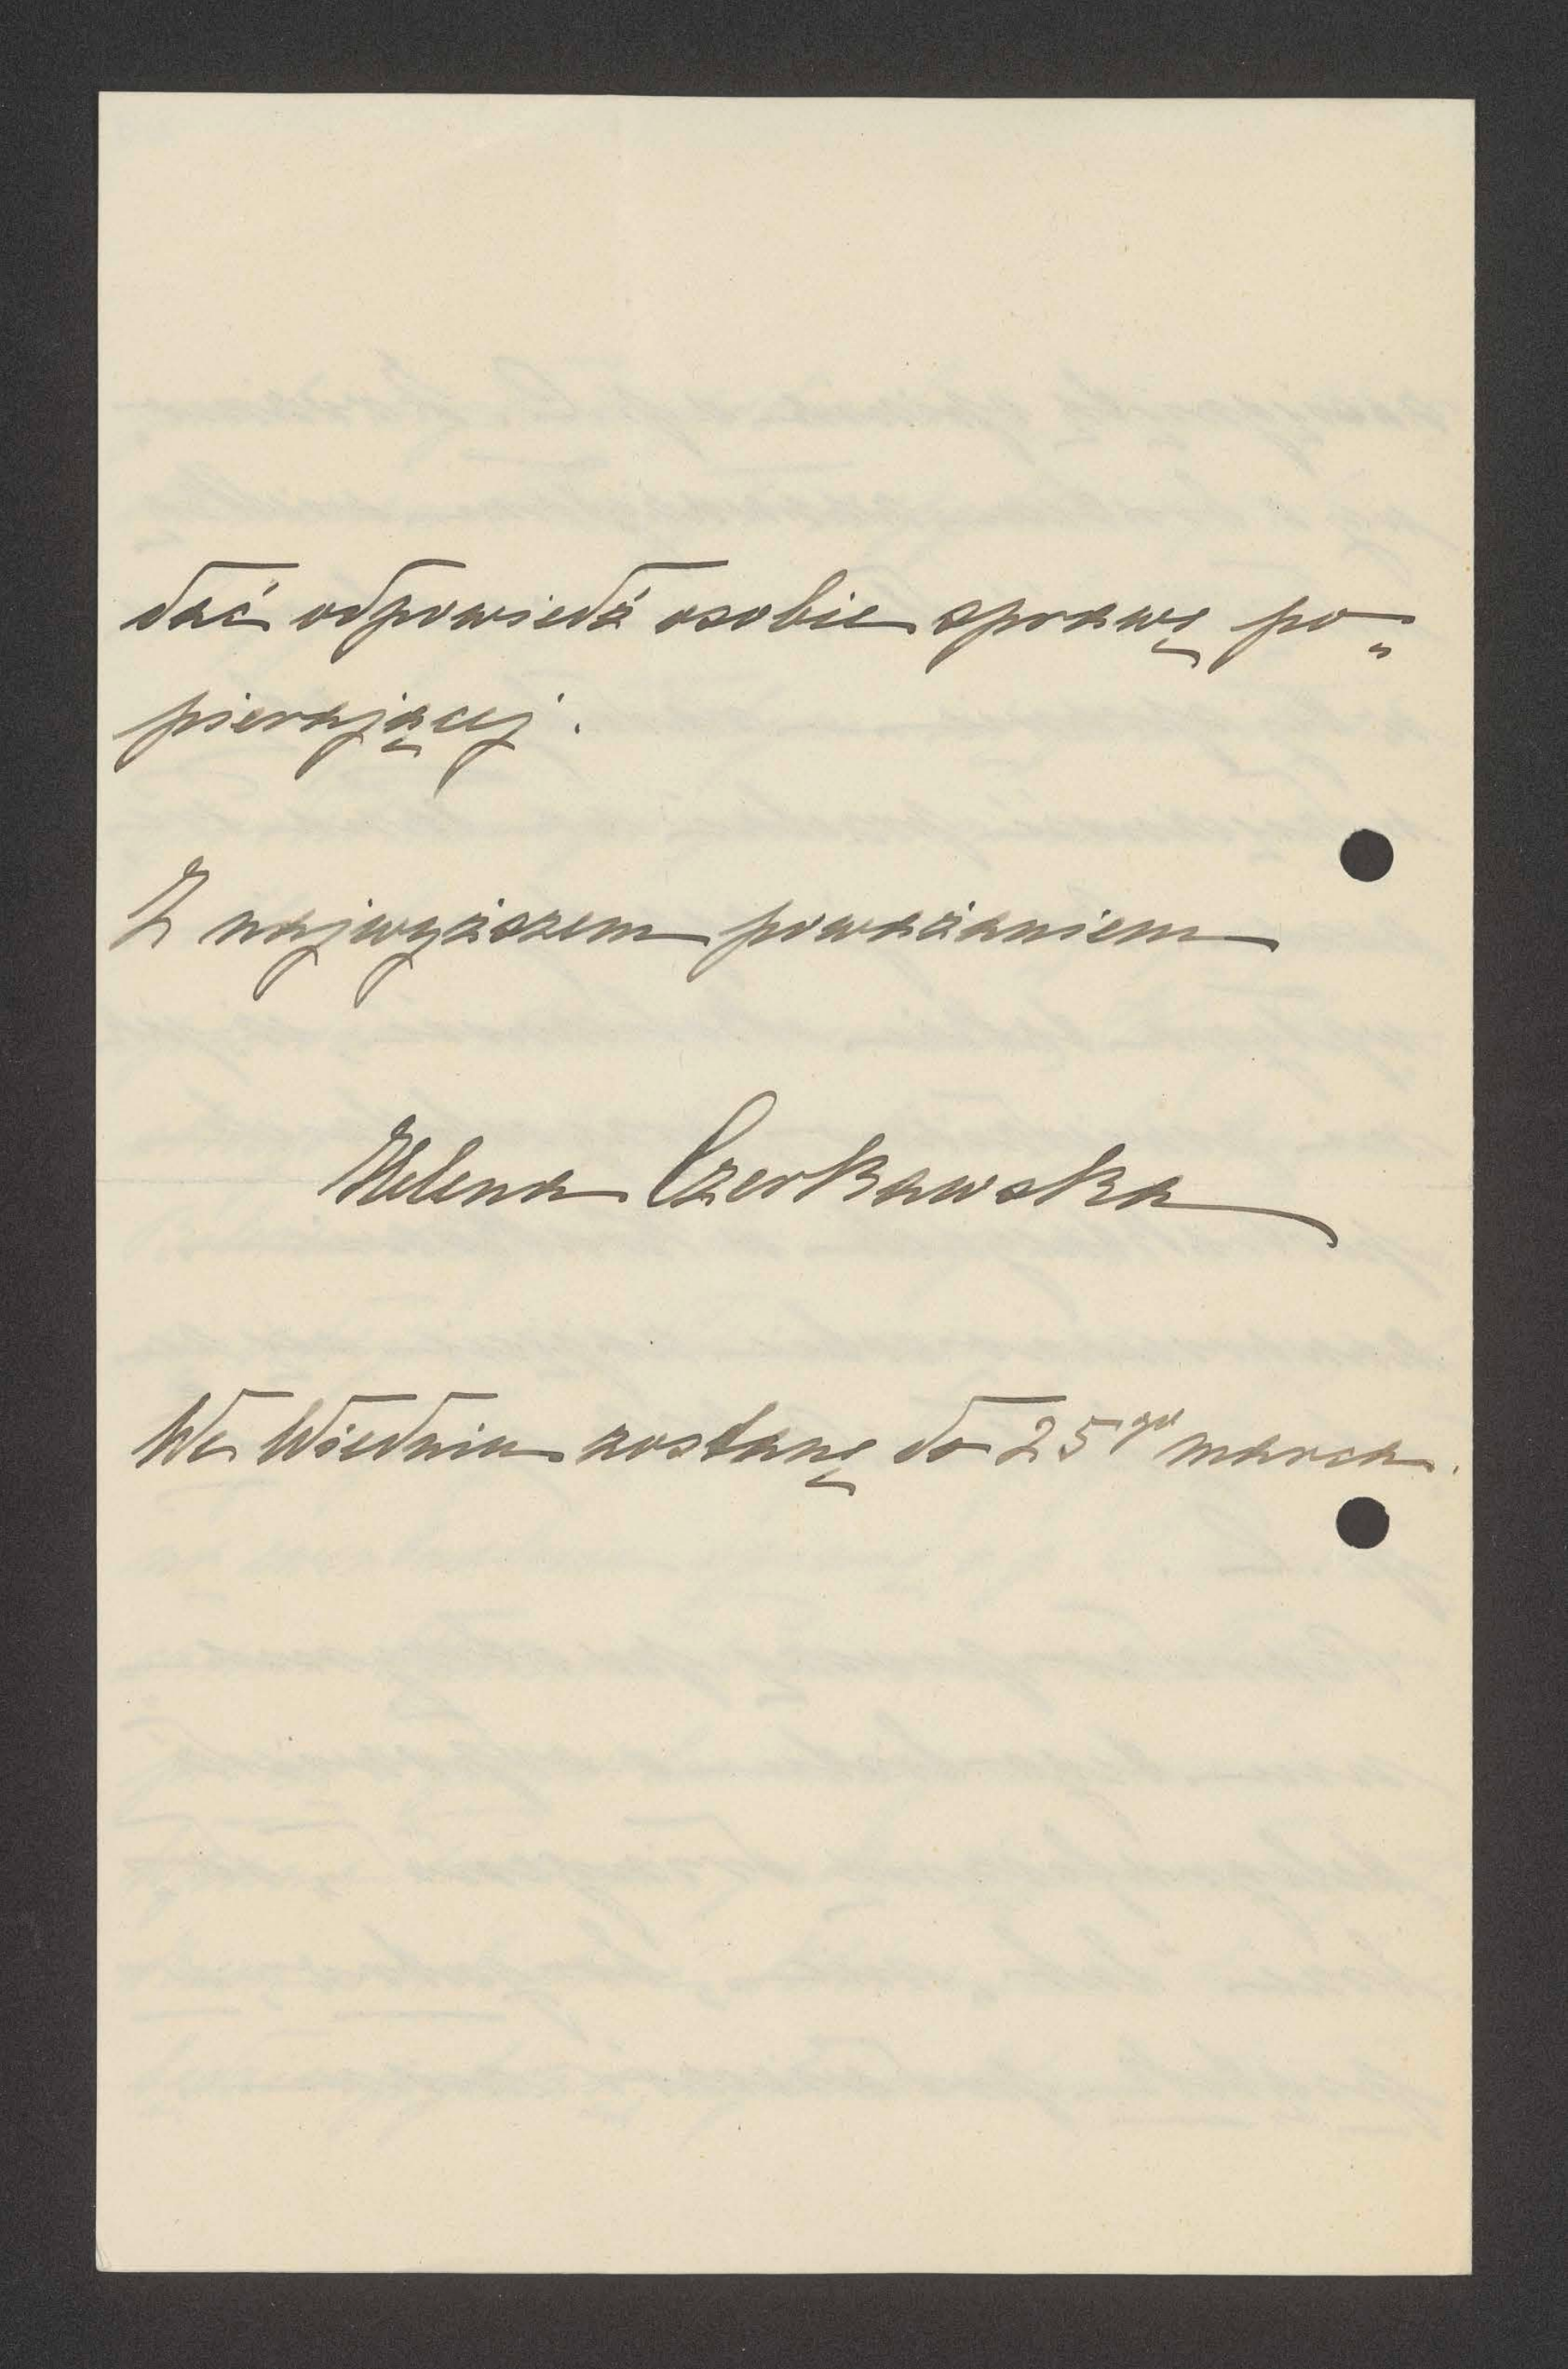 dać odpowiedź osobie sprawę po„
pierającej.
Z najwyższem poważaniem
Helena Czerkawska
We Wiedniu zostanę do 25go marca.